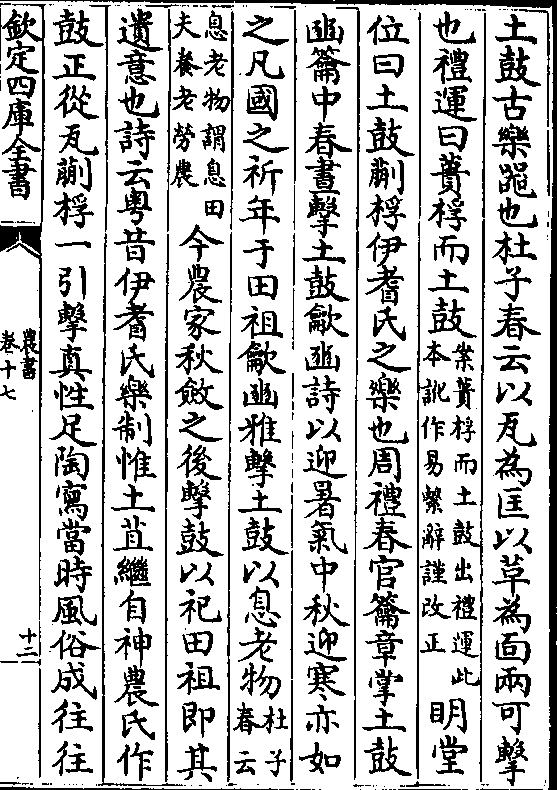 土鼓古樂器也杜子春云以瓦為匡以草為面兩可擊
也禮運曰蕢桴而土鼓案蕢桴而土鼓出禮運此本訛作易繫辭謹改正明堂
位曰土鼓蒯桴伊耆氏之樂也周禮春官籥章掌土鼓
豳籥中春晝擊土鼓龡豳詩以迎暑氣中秋迎寒亦如
之凡國之祈年于田祖龡豳雅擊土鼓以息老物杜子春云
息老物謂息田夫養老勞農今農家秋斂之後擊鼓以祀田祖即其
遺意也詩云粤昔伊耆氏樂制惟土苴繼自神農氏作
鼓正從瓦蒯桴一引擊真性足陶寫當時風俗成往往
欽定四庫全書
農書
卷十七
十二